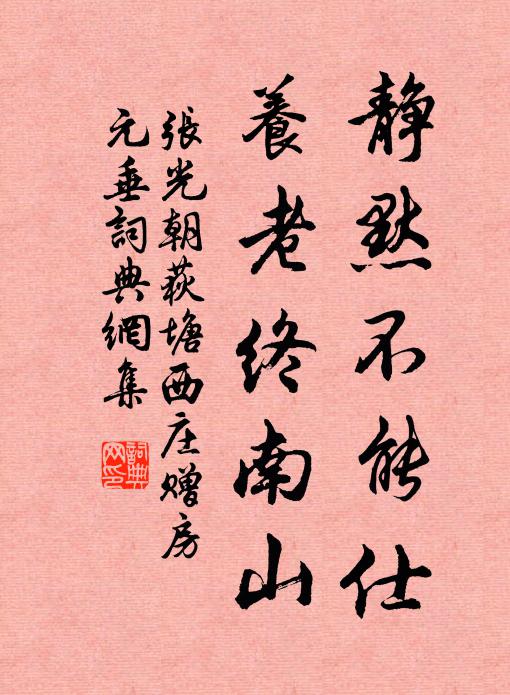 静默不能仕
養老終南山
張光朝荻塘西庄赠房
元垂詞典網集
詞典網印